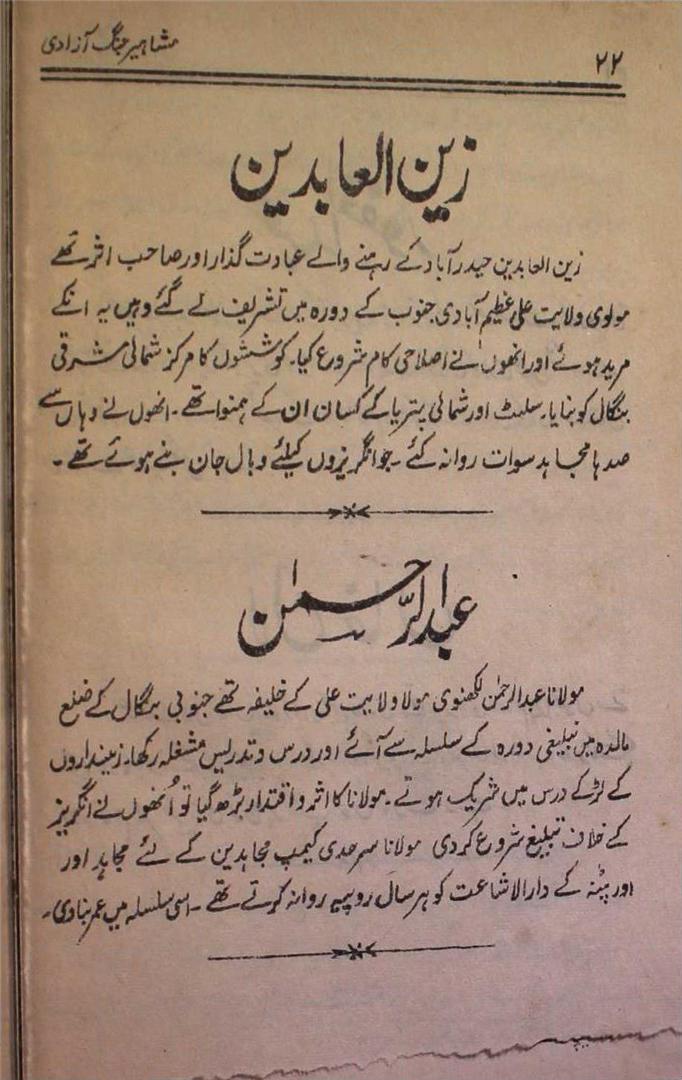 ۲۲
مشاہیر جنگ آزادی
زین العابدین
زین العابدین حیدرآباد کے رہنے والے عبادت گذار اور صاحب اثر تھے
مولوی ولایت علی عظیم آبادی جنوب کے دورہ میں تشریف لے گئے وہیں یہ انکے
مرید ہوئے اور انھوں نے اصلاحی کام شروع کیا۔ کوششوں کا مرکز شمالی مشرقی
بنگال کو بنایا۔ سلہٹ اور شمالی پتریا کے کسان ان کے ہمنوا تھے۔ انھوں نے وہاں سے
صدہا مجاہد سوات روانہ کئے۔ جو انگریزوں کیلئے وبال جان بنے ہوئے تھے۔
عبدالرَّحمٰن
مولانا عبدالرحمٰن لکھنوی مولا ولایت علی کے خلیفہ تھے جنوبی بنگال کے ضلع
مالدہ میں تبلیغی دورہ کے سلسلہ سے آئے اور درس و تدریس مشغلہ رکھا۔ زمینداروں
کے لڑکے درس میں شریک ہوتے۔ مولانا کا اثر و اقتدار بڑھ گیا تو اُنھوں نے انگریز
کے خلاف تبلیغ شروع کردی مولانا سرحدی کیمپ مجاہدین کے لئے مجاہد اور
اور پٹنہ کے دارالاشاعت کو ہر سال روپیہ روانہ کرتے تھے۔ اسی سلسلہ میں عمر بتادی۔